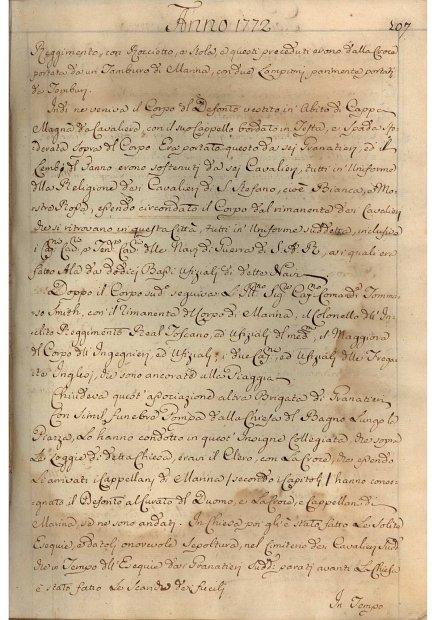 Anno 1772
207
Reggimento, con Rocciotto, e Stola, e questi preceduti erono dalla Croce
portata da un Tamburo di Marina, con due Lampioni, parimente portati
da Tamburj.
Indi ne veniva il Corpo del Defonto vestito in' Abito di Cappa
Magna da Cavaliere, con il suo Cappello bordato in Testa, e Spada sfo
derata sopra del Corpo. Era portato questo da sej Granatieri, ed il
Lembj del Panno erono sostenuti da sej Cavalierj, tutti in' Uniforme
della Religione dei Cavalierj di S. Stefano, cioè Bianca, e Mo
stra Rossa, essendo circondato il Corpo dal rimanente dei Cavalierj
che si ritrovano in questa Città, tutti in' Uniforme suddetta, inclusive
i delle Navj di Guerra di S. A. R., a i quali era
fatto Ala da dodici Bassi Ufizialj di dette Navj.
Doppo il Corpo sudo. seguiva Comand. Tomma
so Smith, con il rimanente del Corpo di Marina, il Colonello dell' In
clito Reggimento Real Toscano, ed Ufizialj del med.mo, il Maggiore
del Corpo dell' Ingegnierj, ed Ufizialj, i due ed Ufizialj delle Frega
te Inglesj, che sono ancorate alla Piaggia.
Chiudeva quest' associazione altra Brigata di Granatieri.
Con simil funebre Pompa dalla Chiesa del Bagno Lungo la
Piazza, Lo hanno condotto in quest' Insigne Collegiata, che sopra
Le Loggie di detta Chiesa, erasi il Clero, con La Croce, che essendo
Li arrivati i Cappellanj di Marina (secondo i Capitoli) hanno conse-
gnato il Defonto al Curato del Duomo, e La Croce, e Cappellani di
Marina, se ne sono andati. In Chiesa poi gl' è stato fatto Le solite
Esequie, e datoli onorevole sepoltura, nel Cimitero dei Cavalieri sudd.
che in Tempo dell' Esequie dai Granatieri sudd.i parati avanti La Chiesa
è stato fatto Le Scariche de' fucilj.
In Tempo